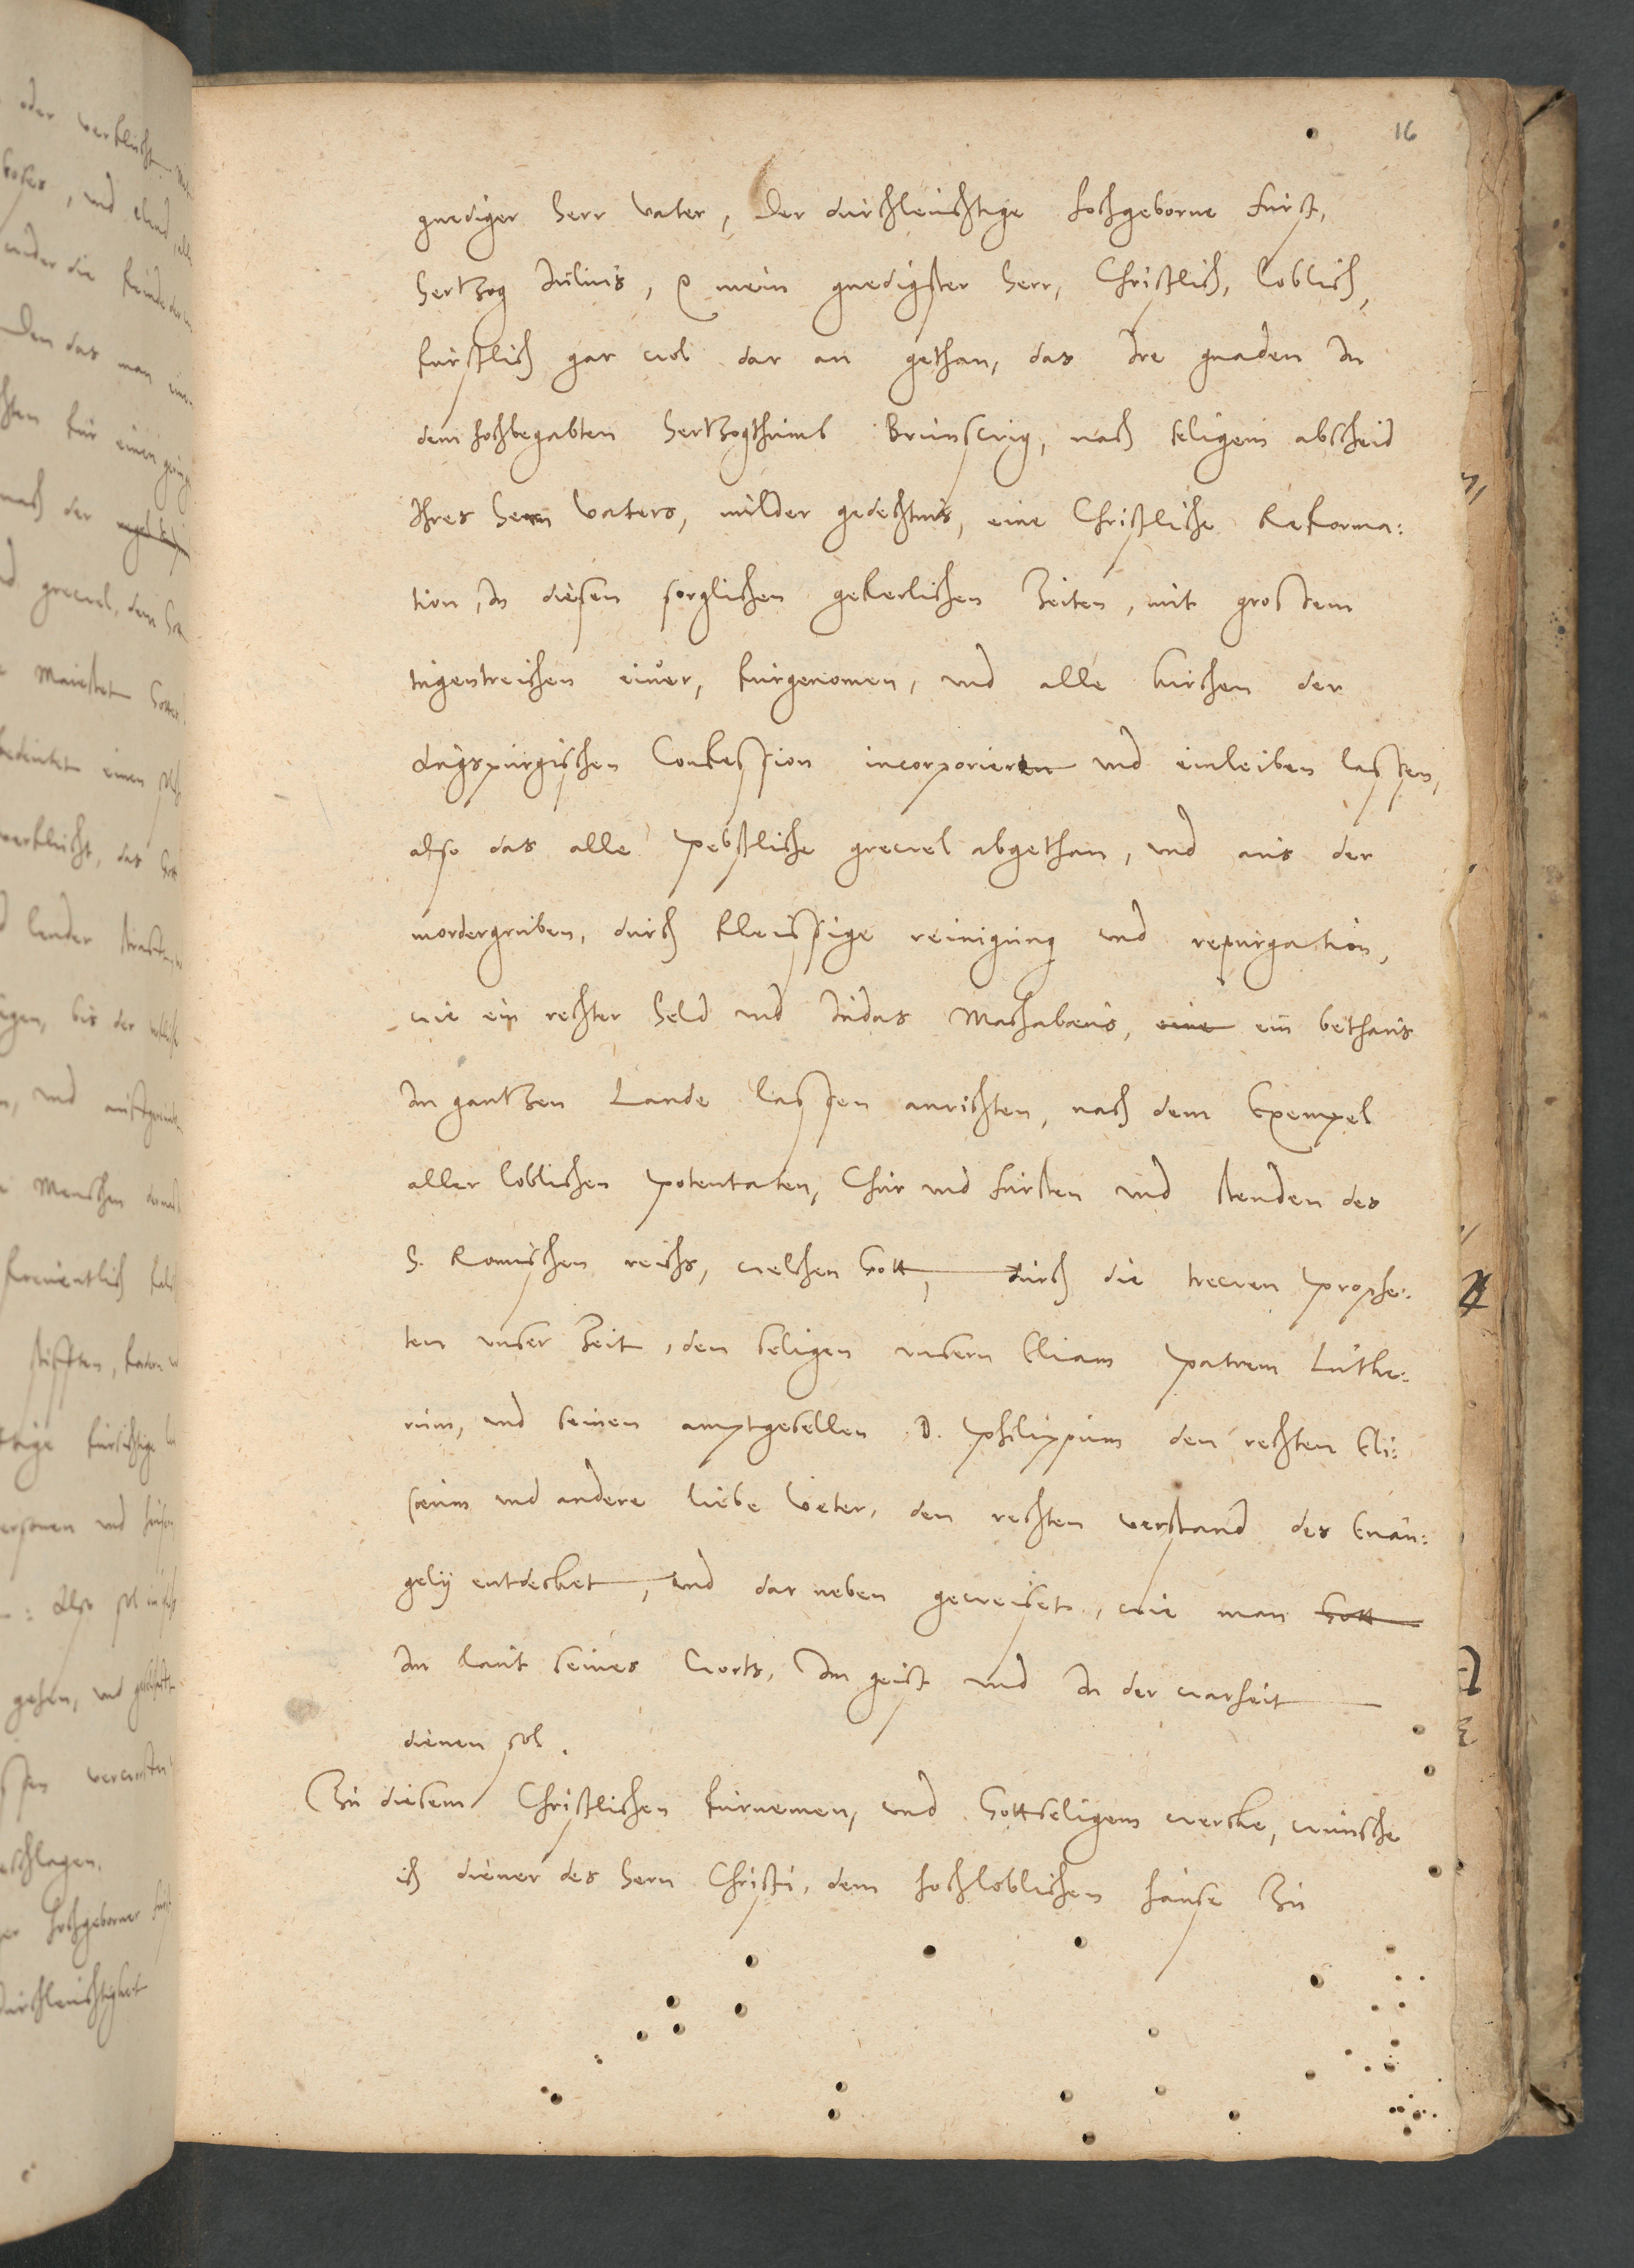 16
gnediger Herr Vater, Der durchleuchtige hochgeborne furst,
Hertzog Julius, ꝛ mein gnedigster Herr, Christlich, loblich,
furstlich gar wol dar an gethan, das Ire gnaden In
dem hochbegabten Hertzogthumb Brunswig, nach seligem abscheid
Ihres Hern Vaters, milder gedechtnis, eine Christliche Reforma:
tion, In diesen sorglichen geferlichen Zeiten, mit grossem
tugentreichen eiuer, furgenomen, und alle kirchen der
Augspurgischen Confession incorporieren und einleiben lassen,
also das alle Pebstliche grewel abgethan, und aus der
mordergruben, durch fleissige reinigung und repurgation,
wie ein rechter Held und Iudas Machabeus, eine ein bethaus
Im gantzen Lande lassen anrichten, nach dem Exempel
aller loblichen Potentaten, Chur und fursten und stenden des
H. Romischen reichs, welchen Gott, durch die trewen Prophe:
ten unser Zeit, den seligen unsern Eliam Patrem Luthe:
rum, und seinen amptgesellen D. Philippum den rechten Eli:
seum und andere liebe Veter, den rechten verstand des Euan:
gelij entdecket, und dar neben geweiset, wie man Gott
Im laut seines Worts, Im geist und In der warheit
dienen sol.
Zu diesem Christlichen furnemen, und Gottseligem wercke, wunsche
ich diener des Hern Christi, dem hochloblichen hause Zu